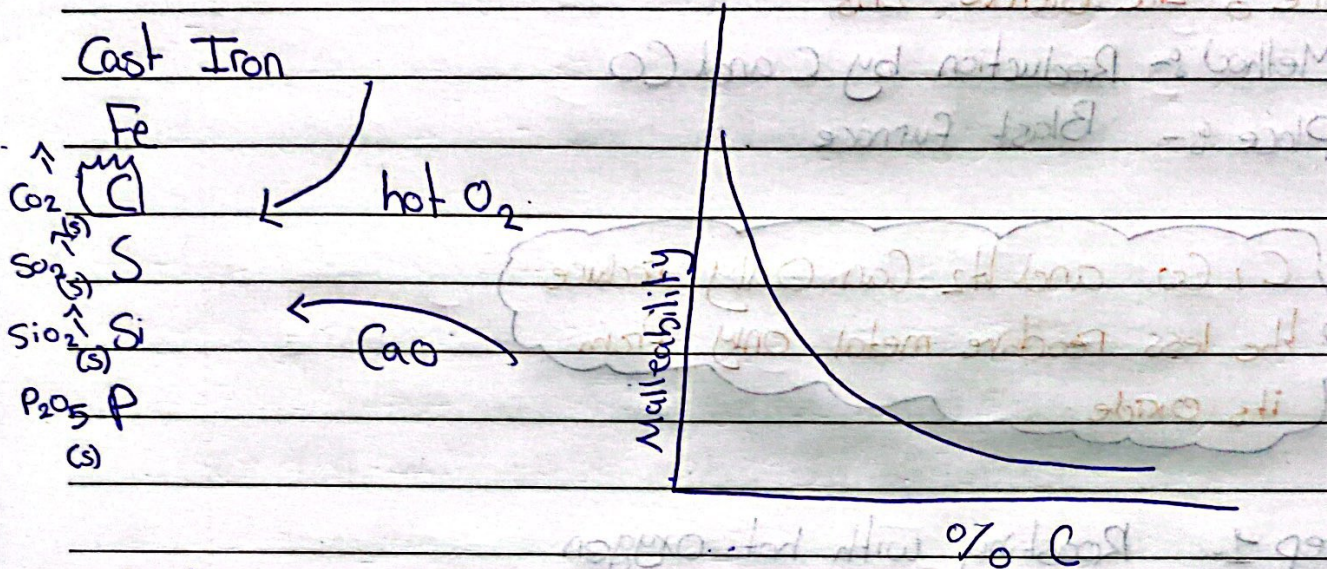 Cast Iron
Fe
CO2 C hot O2
(s)
SO2 S
(s)
SiO2 Si CaO
(s)
P2O5 P
(s)
Malleability
% C